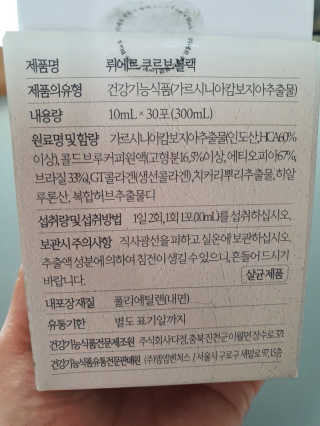 제품명 뤼에트 쿠르보블랙
제품의유형 건강기능식품(가르시니아캄보지아추출물)
내용량 10mL × 30포 (300mL)
원료명 및 함량 가르시니아캄보지아추출물(인도산, HCA60%
이상), 콜드브루커피원액(고형분16.5%이상, 에티오피아67%,
브라질 33%), GT콜라겐(생선콜라겐), 치커리뿌리추출물, 히알
루론산, 복합허브추출물디
섭취량 및 섭취방법 1일 2회, 1회 1포(10mL)를 섭취하십시오.
보관시 주의사항 직사광선을 피하고 실온에 보관하십시오.
추출액 성분에 의하여 침전이 생길 수 있으니, 흔들어 드시기
바랍니다. 살균제품
내포장재질 폴리에틸렌(내면)
유통기한 별도 표기일까지
건강기능식품전문제조원 주식회사다정, 충북 진천군 이월면 장수로
건강기능식품유통전문판매원 (주)엠엠벤처스 / 서울시 구로구 새말로 97,